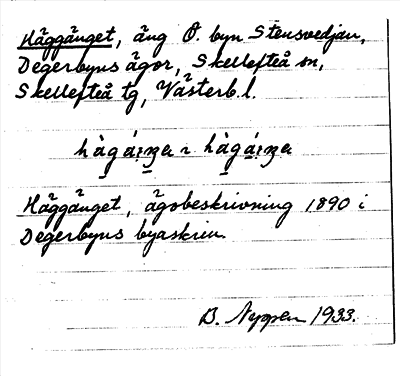 Häggänget, äng Ö. byn Stensvedjan,
Degerbyns ägor, Skellefteå sn,
Skellefteå tg, Västerb. l.
Häggänget, ägobeskrivning 1890 i
Degerbyns byaskrin.
B. Nyman 1933.